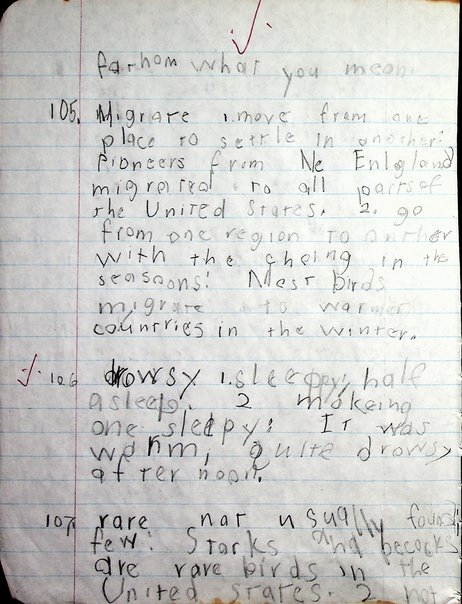 farhom what you mean.
105. Migrare 1.move from one
place to settle in another:
Pioneers from Ne Enlgland
migrated to all parts of
the United States. 2. go
from one region to anrher
with the cheing in the
seasoons: Most birds
migrate to warmer
countries in the winter.
106 drowsy 1.sleepy; half
asleep. 2 makeing
one sleepy: It was
warm, quite drowsy
afternoon.
107, rare not usually found;
few: Storks and pecocks
are rare birds in the
United States. 2 not